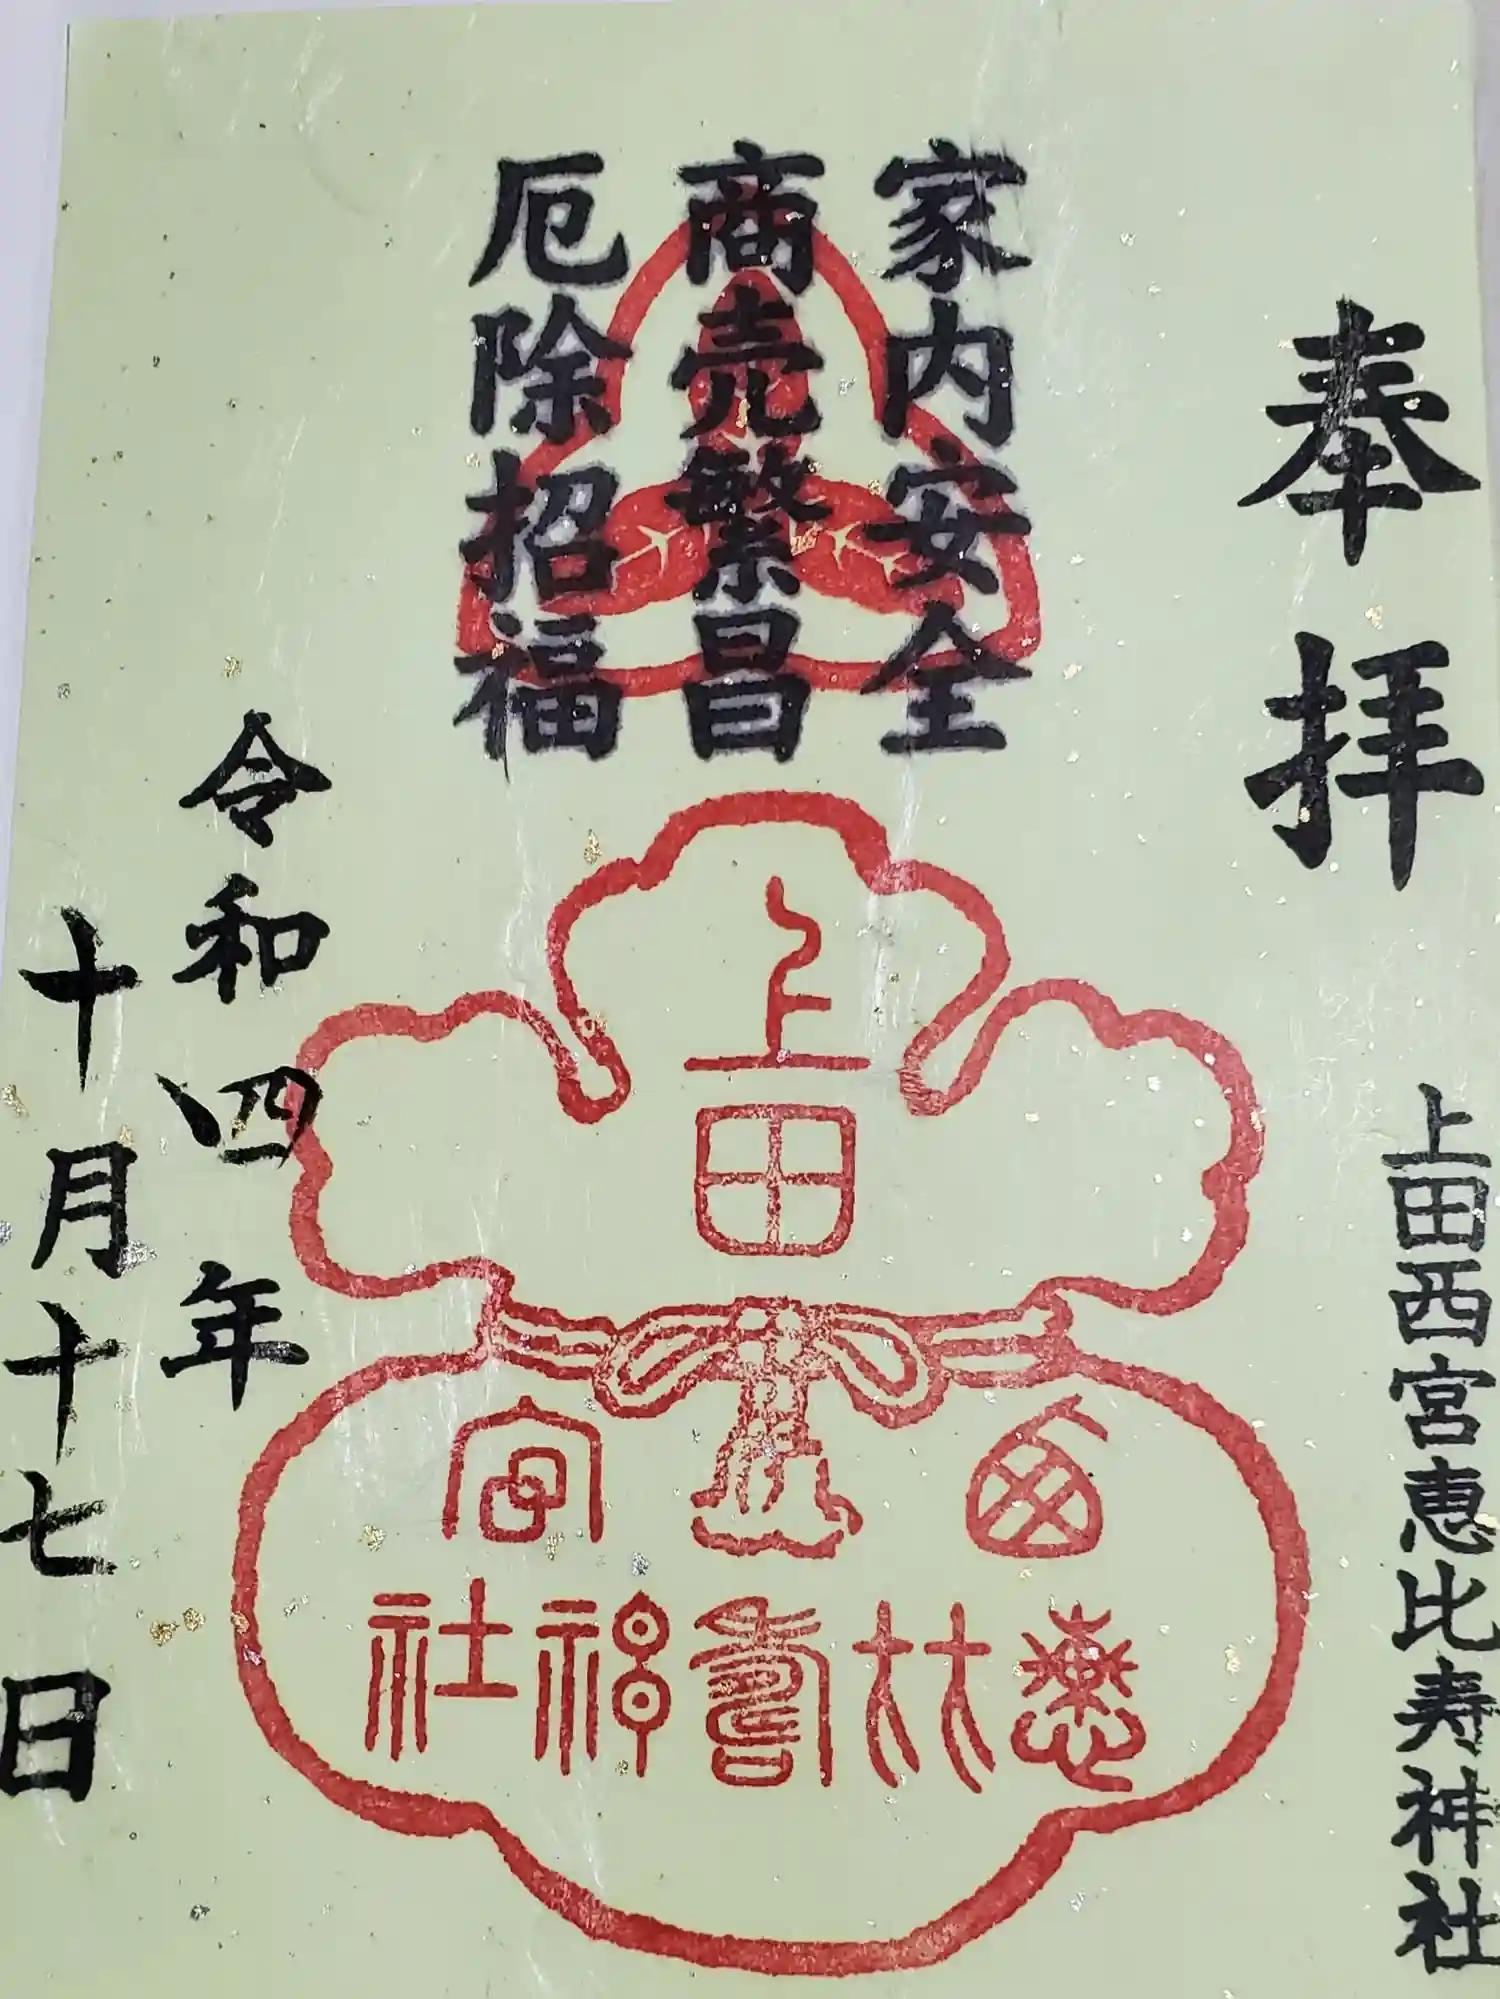 奉拝
上田西宮恵比寿神社
家内安全
商売繁昌
厄除招福
上田
西宮
恵比寿神社
令和四年
十月十七日